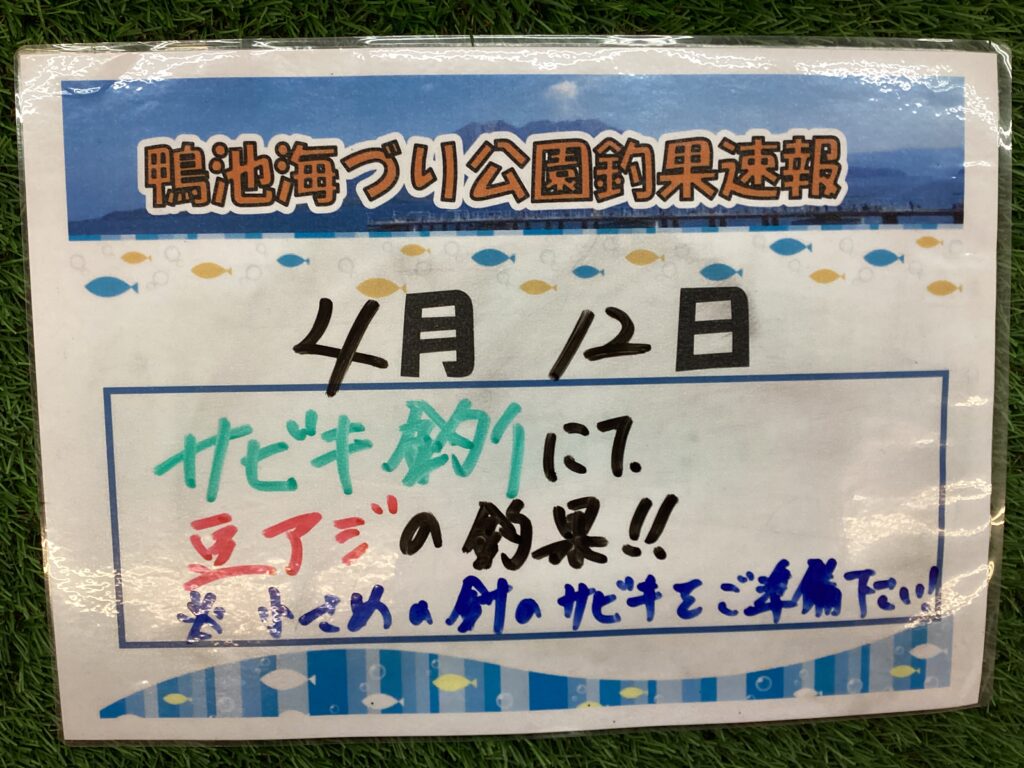 鴨池海づり公園釣果速報
4月 12日
サビキ釣りにて、
豆アジの釣果!!
※小さめの針のサビキをご準備下さい!